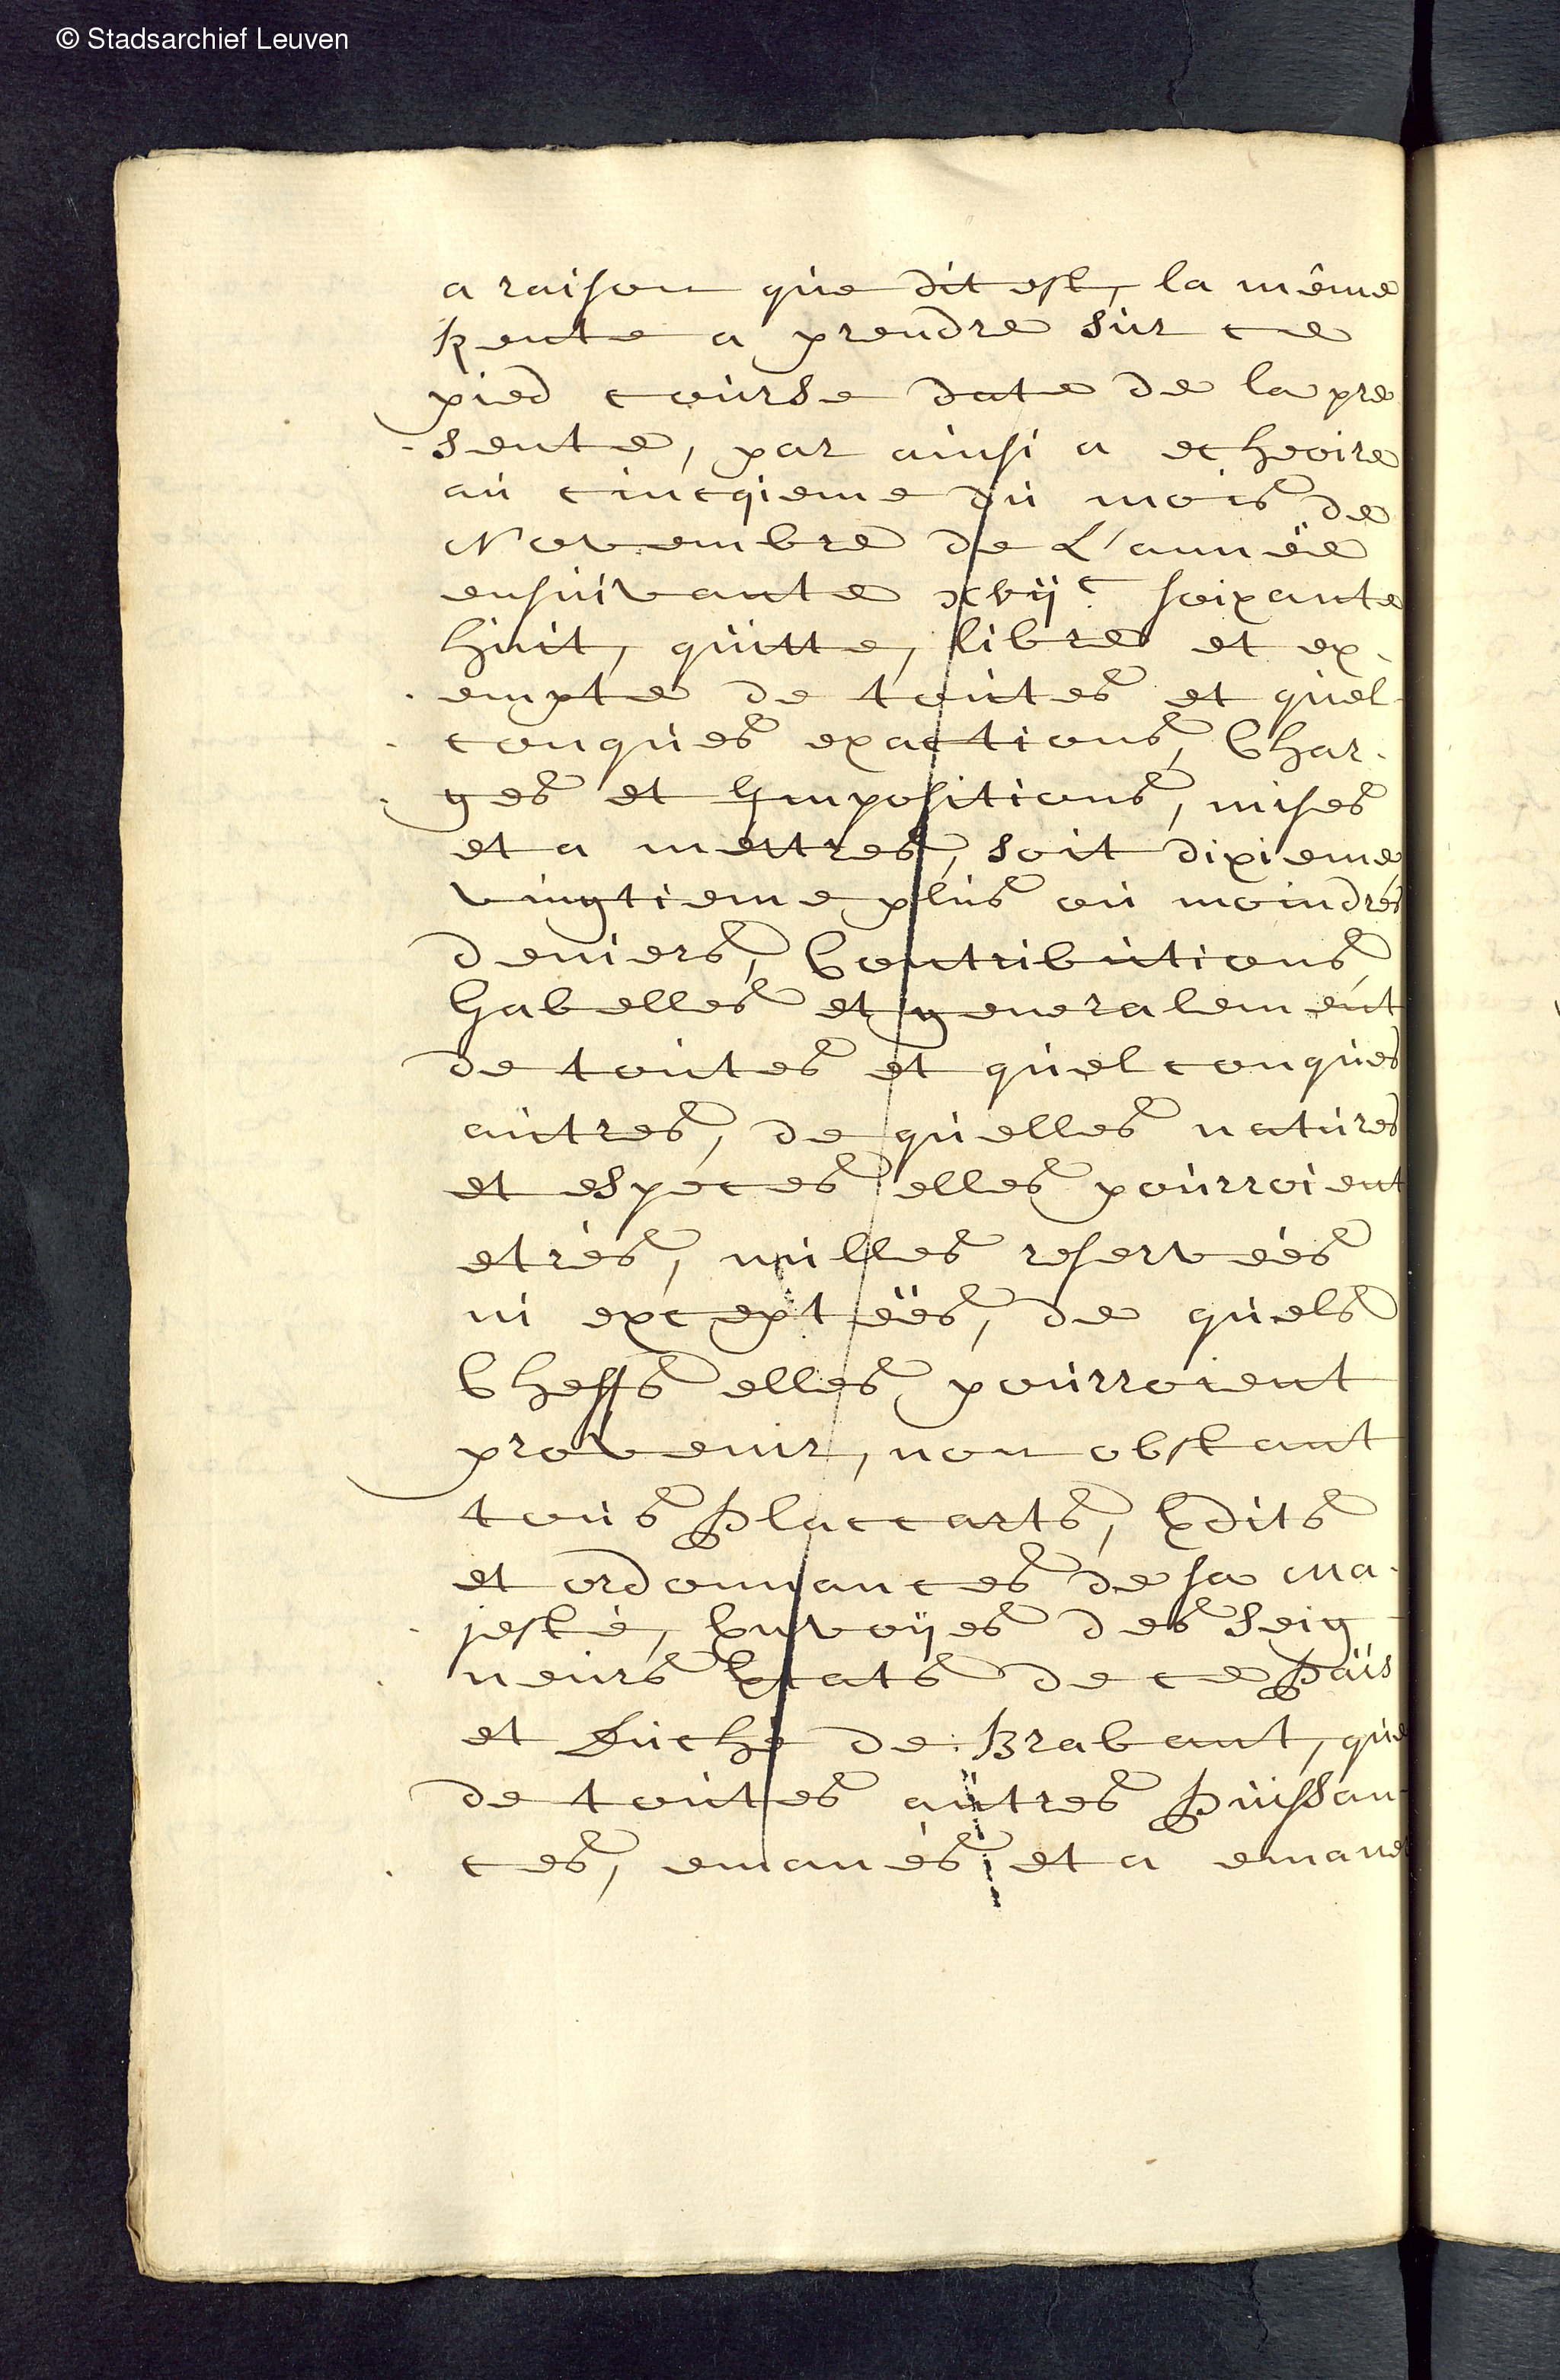 © Stadsarchief Leuven
a raison que dit est, la même
Rente a prendre sur ce
pied course date de la pre
-sente, par ainsi a echeoire
au cincqieme du mois de
Novembre de L'année
ensuivante xvijc soixante
huit, quitte, libre et ex-
-empte de toutes et quel-
-conques exactions, Char-
-ges et Impositions, mises
et a mettres, soit dixieme
vingtieme plus ou moindres
deniers, Contributions,
Gabelles et generalement
de toutes et quelconques
autres, de quelles natures
et especes elles pourroient
etres, nulles reservées
ni exceptéés, de quels
Cheffs elles pourroient
provenir, non obstant
tous Placcarts, Edits
et ordonnances de sa Ma-
-jesté, Envoÿes des Seig
-neurs Etats de ce Païs
et Duché de Brabant, que
de toutes autres Puissan-
-ces, emanés et a emaner